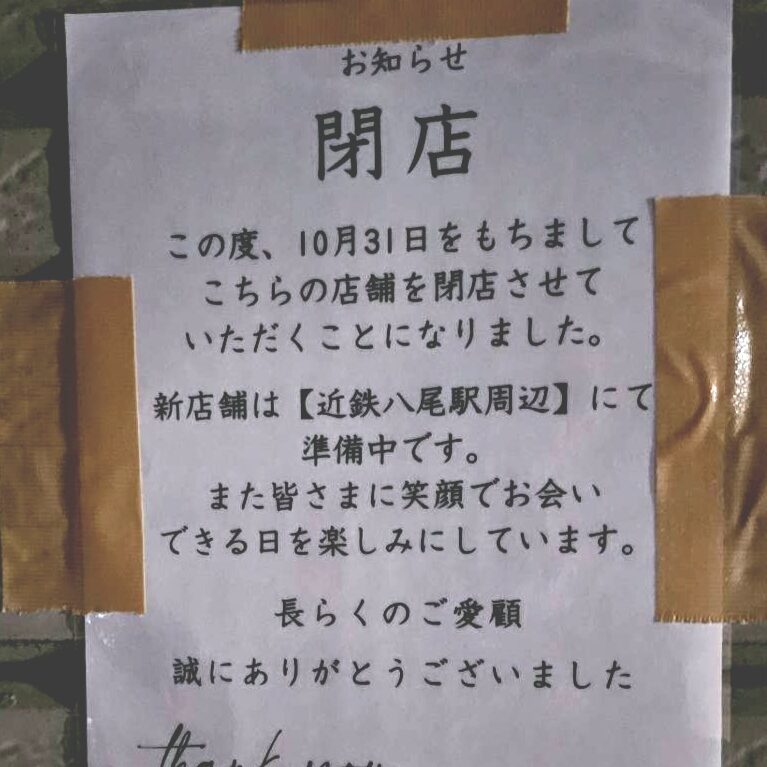 お知らせ
閉店
この度、10月31日をもちまして
こちらの店舗を閉店させて
いただくことになりました。
新店舗は【近鉄八尾駅周辺】にて
準備中です。
また皆さまに笑顔でお会い
できる日を楽しみにしています。
長らくのご愛顧
誠にありがとうございました
thank you